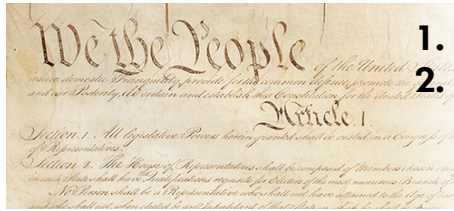 We the People of the United
1.
insure domestic Tranquility, provide for the common defence, promote the
2.
and our Posterity, do ordain and establish this Constitution for the United States of
Article. I.
Section. 1. All legislative Powers herein granted shall be vested in a Congress of
of Representatives.
Section. 2. The House of Representatives shall be composed of Members chosen every
in each State shall have Qualifications requisite for Electors of the most numerous Branch of
No Person shall be a Representative who shall not have attained to the Age of
and who shall not, when elected, be an Inhabitant of that State in which he shall be